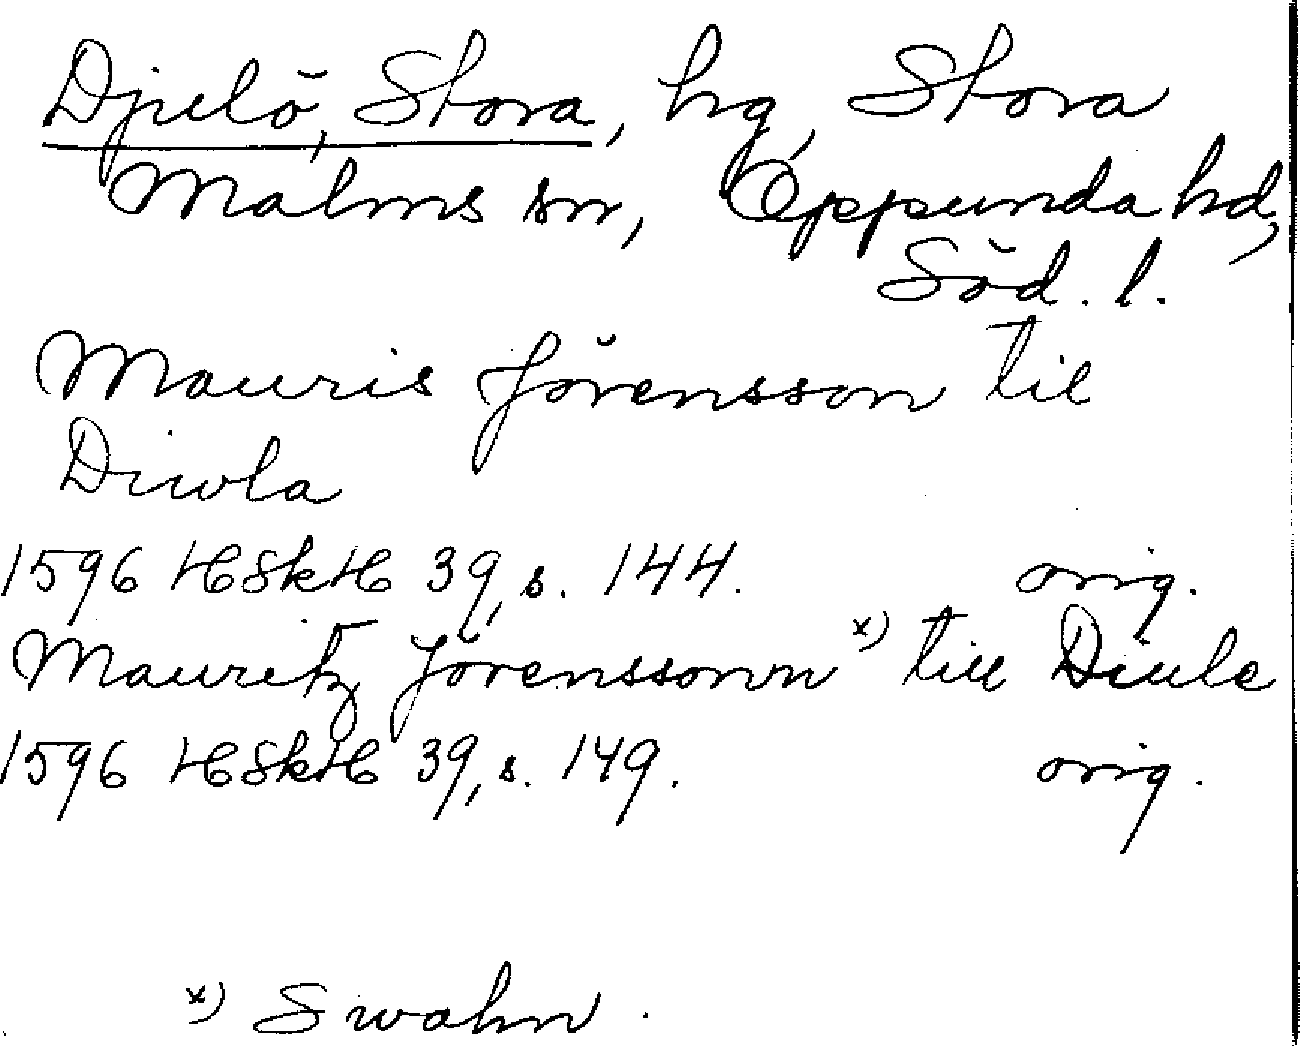 Djulö, Stora, hg, Stora
Malms sn, Oppunda hd,
Söd. l.
Mauris Jörensson til
Diwla
1596 HSkH 39, s. 144. orig.
Mauritz Jörenssonn x) till Diule
1596 HSkH 39, s. 149. orig.
x) Swahn.